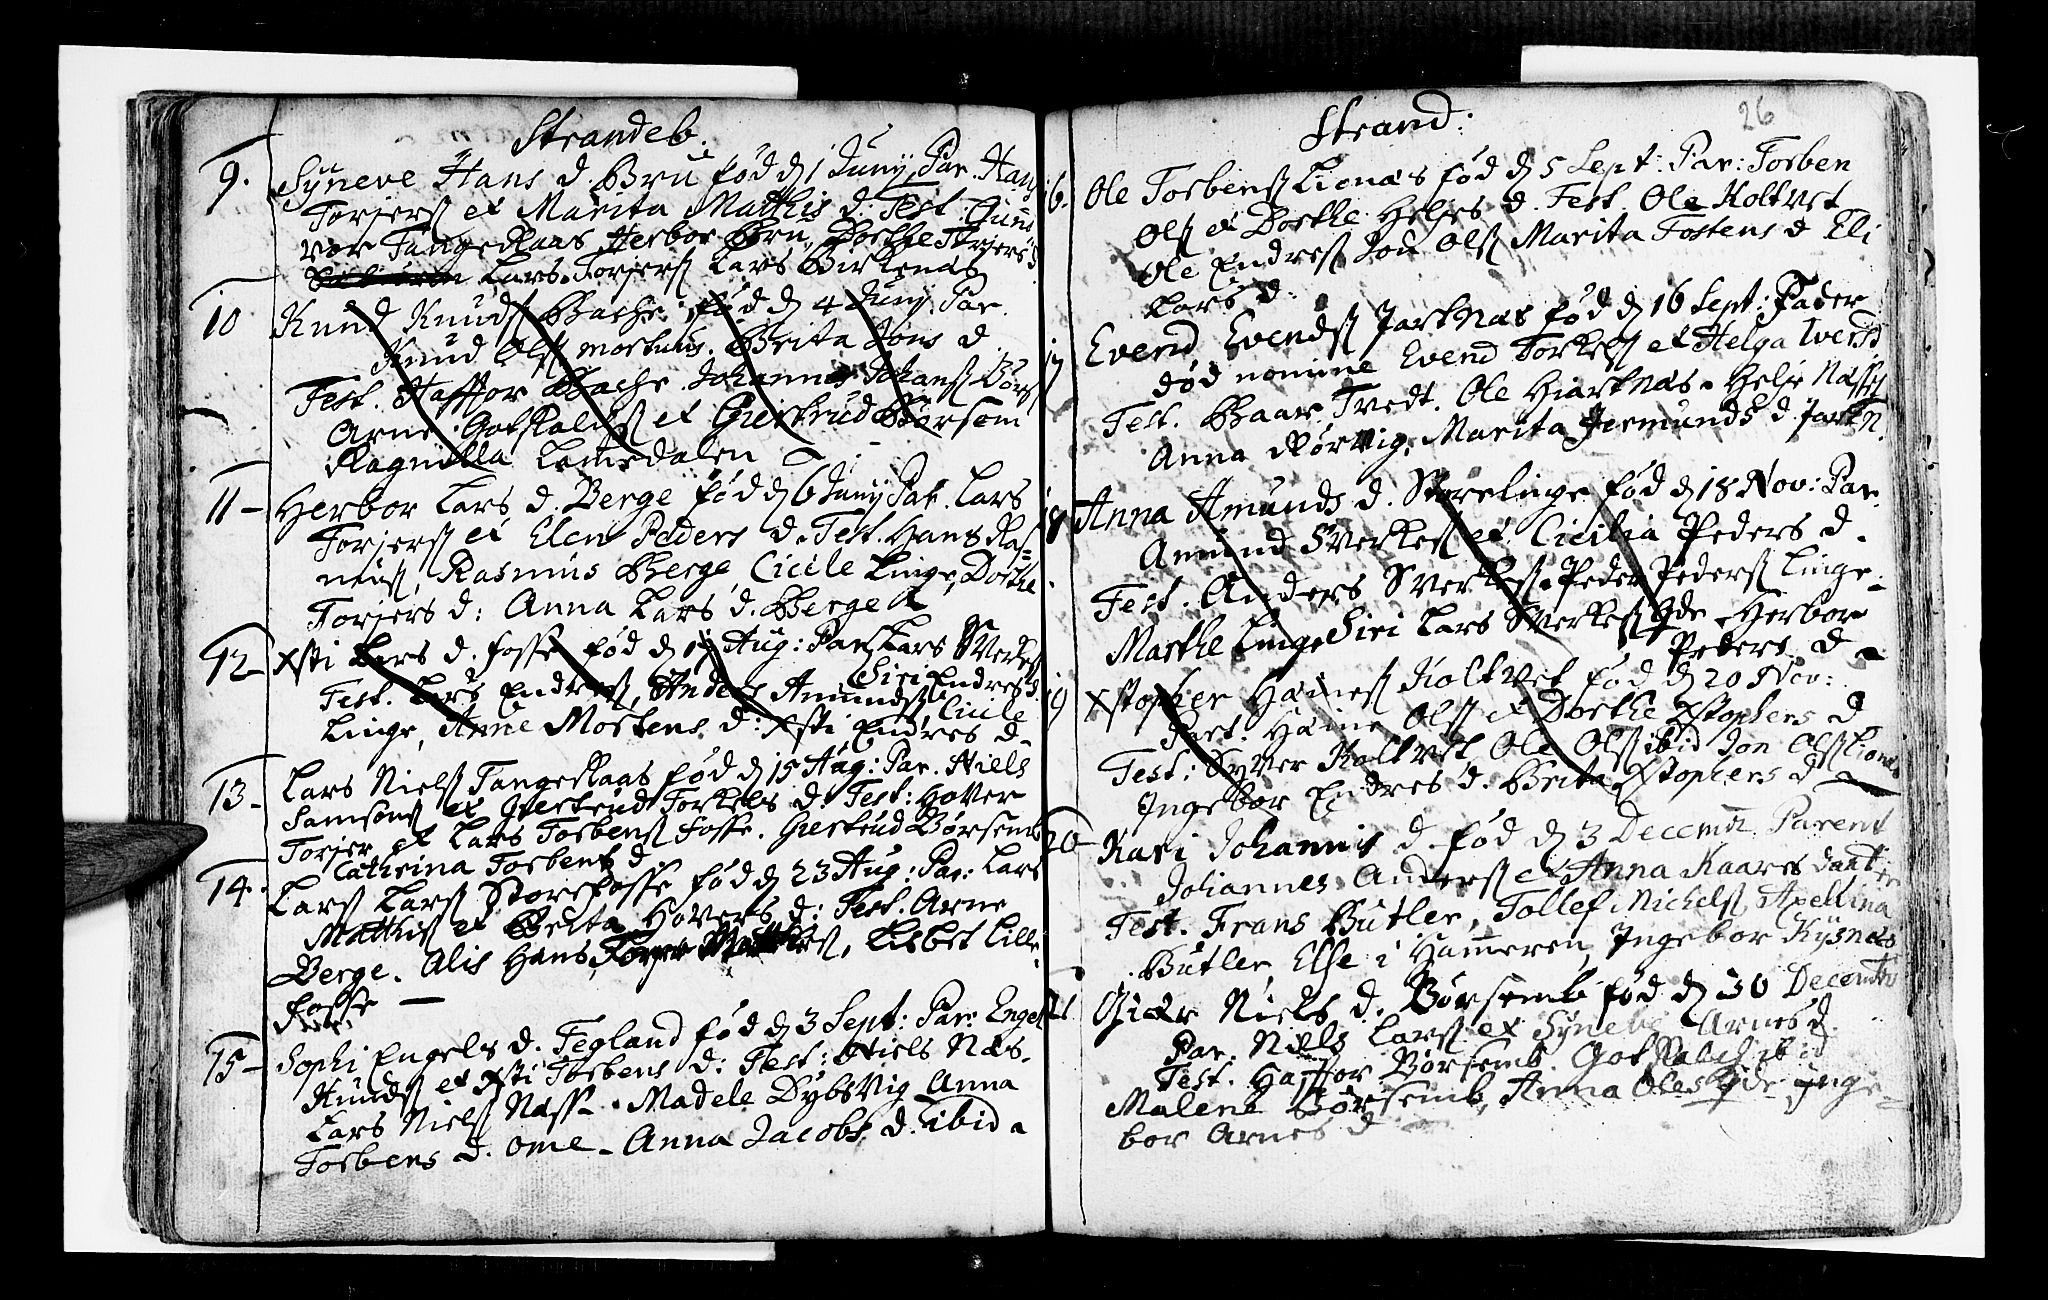 Strandeb.
9. Syneve Hans d. Bru fød d 1 Juny. Par. Hans
Torjers et Marita Matthis d. Test. Gun̄e
vor Tangeraas Herbor Bru, Dorthe Torjers d
Lars Torjers Lars Birkenæs
10 Knud Knuds Bache. fød d 4 Juny. Par.
Knud Ols mortuus. Brita Jons d.
Test. Haffor Bache. Johannes Johans Børs
Arne Gotskalchs et Giertrud Børsem
Ragnilla Lemedalen
11 - Herbor Lars d. Berge fød d 6 Juny Par. Lars
Torjers et Elen Peders d. Test. Hans Ras=
mus, Rasmus Berge, Cicile Linge, Dorthe
Torjers d: Anna Lars d. Berge
12 - Xsti Lars d. Fosse fød d Aug: Par. Lars Sverkes
Siri Endres d.
Test. Lars Endres, Anders Amunds, Cicile
Linge, Anne Mortens d: Xsti Endres d.
13 - Lars Niels Tangeraas fød d 15 Aug: Par. Niels
Samsons et Giertrud Torkels d: Test: Hover
Torjer et Lars Torbens Fosse. Giertrud Børsemb
Cathrina Torbens d
14. Lars Lars Storefosse fød d 23 Aug: Par: Lars
Matthis et Brita Hovers d: Test. Arne
Berge. Alis Hans Lisbet Lille=
fosse —
15 - Sophi Engels d. Tegland fød d 3 Sept: Par: Engel
Knuds et Xsti Torbens d: Test: Niels Næs.
Lars Niels Næss. Madele Dybsvig Anna
Torbens d. ome - Anna Jacobs d. ibid
Strand:
26
16. Ole Torbens Lionæs fød d 5 Sept: Par: Torben
Ols et Dorthe Helges d. Test. Ole Koltvet
Ole Endres Jon Ols Marita Tostens d Eli
Lars d.
17 Evend Evends Jarknæs fød d 16 Sept: Fader
død nomine Evend Torkels et Helga Iversd
Test. Baar Tvedt. Ole Hiarknæs. Helje Næsse
Anna Rørvig, Marita Jermunds d. Jarkn.
18 Anna Amunds d. Storelinge fød d 18 Nov: Par.
Amund Sverkes et Cicilia Peders d.
Test. Anders Sverkes. Peder Peders Linge.
Marthe Linge Siri Lars Sverkes Yde. Herbor
Peders d
19 Xstopher Haines Koltvet fød d 20 Nov:
Part. Haine Ols et Dorthe Xstophers d
Test: Syver Koltvet Ole Ols ibid Jon Ols Lionæs
Ingebor Endres d. Brita Xstophers d
20 - Kari Johannis d. fød d 3 Decemb. Parent
Johannes Anders et Anna Kaares daatter
Test. Frans Butler, Tollef Michels, Apellina
Butler, Else i Ham̄eren, Ingebor Kysnæs
21 Giør Niels d. Børsemb fød d 30 Decembr
Par. Niels Lars et Syneve Arnes d.
Test. Haffor Børsemb. Gotskalch ibid
Malene Børsemb, Anna Oles Yde Inge=
bor Arnes d